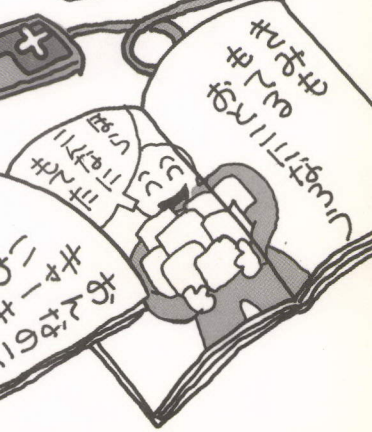 きみも
もてる
おとこになろう
ほら
こんなに
もてた
おんなのこ
きゃー